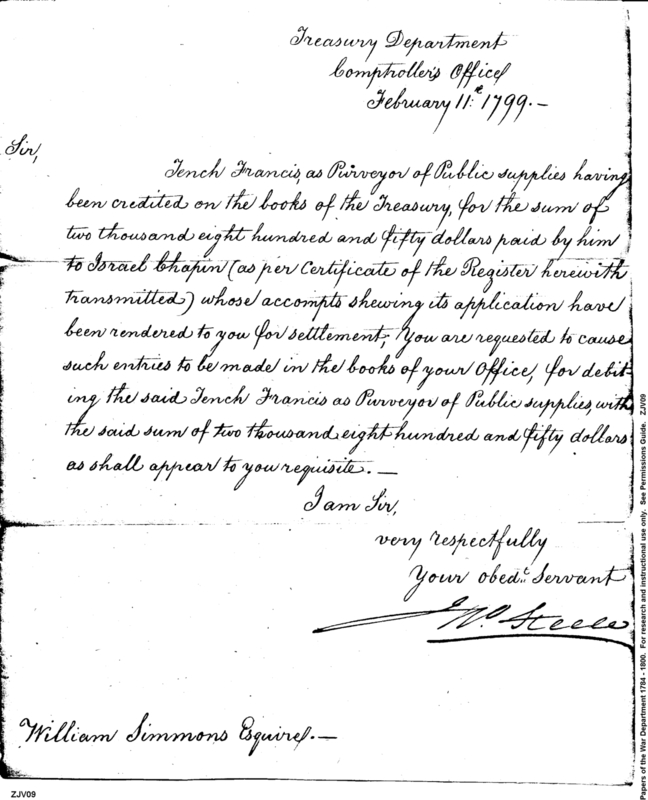 Treasury Department
Comptroller's Office
February 11th 1799.-
Sir,
Tench Francis, as Purveyor of Public supplies having
been credited on the books of the Treasury, for the sum of
two thousand eight hundred and fifty dollars paid by him
to Israel Chapin (as per Certificate of the Register herewith
transmitted) whose accompts shewing its application have
been rendered to you for settlement; You are requested to cause
such entries to be made in the books of your Office, for debit-
ing the said Tench Francis as Purveyor of Public supplies, with
the said sum of two thousand eight hundred and fifty dollars
as shall appear to you requisite. —
I am Sir,
very respectfully
Your obedt. Servant
Jno. Steele
William Simmons Esquire. —
ZJV09
Papers of the War Department 1784 - 1800. For research and instructional use only. See Permissions Guide. ZJV09